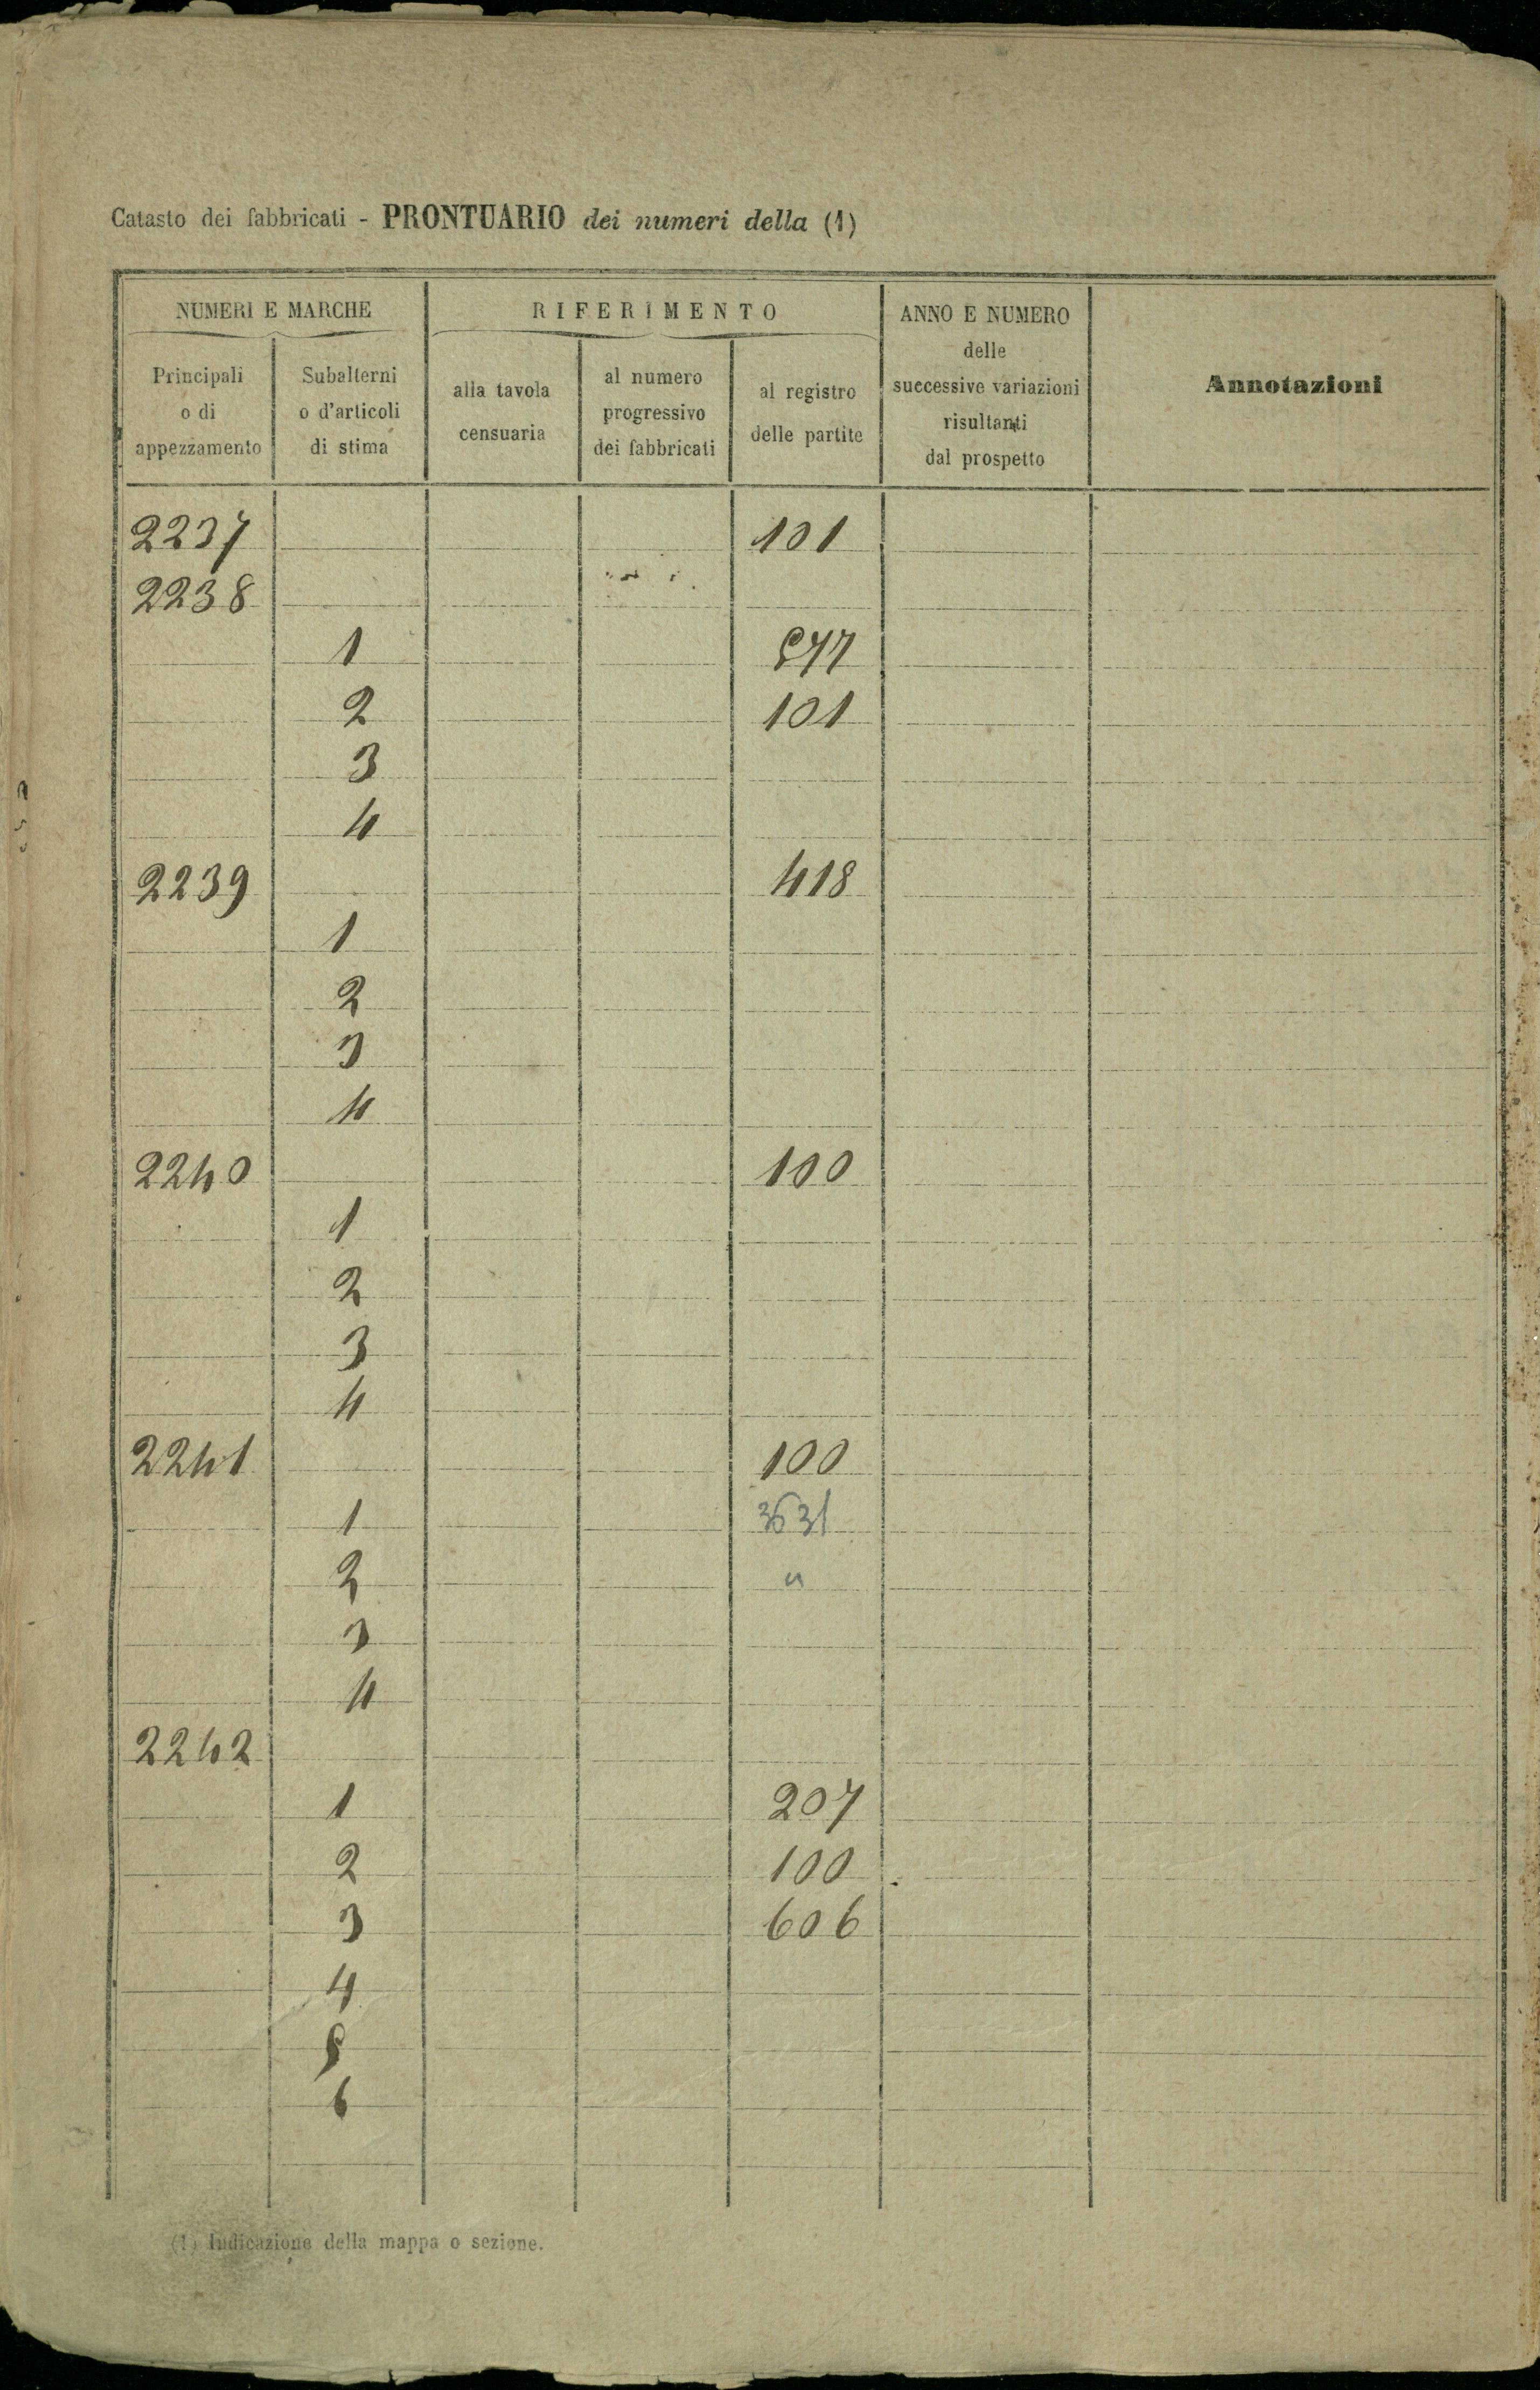 Catasto dei fabbricati - PRONTUARIO dei numeri della (1)
NUMERI E MARCHE
RIFERIMENTO
ANNO E NUMERO
delle
successive variazioni
risultanti
dal prospetto
Annotazioni
Principali
o di
appezzamento
Subalterni
o d'articoli
di stima
alla tavola
censuaria
al numero
progressivo
dei fabbricati
al registro
delle partite
2237 101
2238
1
2 101
3
4
2239 418
1
2
3
4
2240 100
1
2
3
4
2241 100
1 3631
2 "
3
4
2242
1 207
2 100
3 606
4
5
6
(1) Indicazione della mappa o sezione.